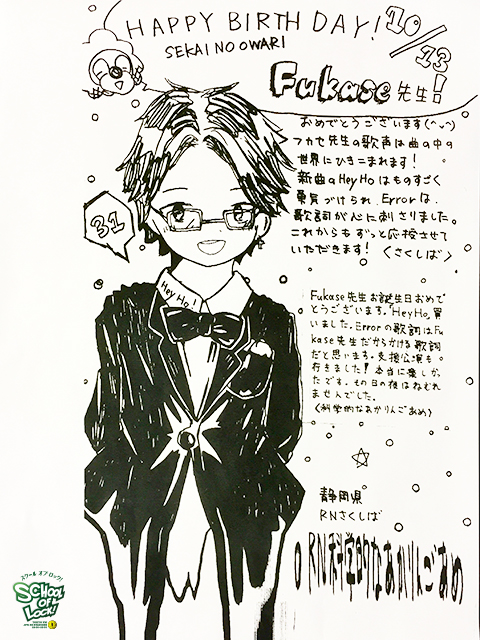 HAPPY BIRTHDAY! 10/13
SEKAI NO OWARI
Fukase先生!
おめでとうございます(^v^)
フカセ先生の歌声は曲の中の
世界にひきこまれます!
新曲のHeyHoはものすごく
勇気づけられ、Errorは、
歌詞が心に刺さりました。
これからもずっと応援させて
いただきます! 〈さくしば〉
31
Hey Ho!
Fukase先生お誕生日おめで
とうございます。「HeyHo」買
いました。Errorの歌詞はFu
kase先生だからかける歌詞
だと思います。支援公演も
行きました!本当に楽しか
たです。その日の夜はねむれ
ませんでした。
〈科学的なあかりんごあめ〉
静岡県
RNさくしば
RN科学的なあかりんごあめ
スクール オブ ロック!
SCHOOL OF LOCK!